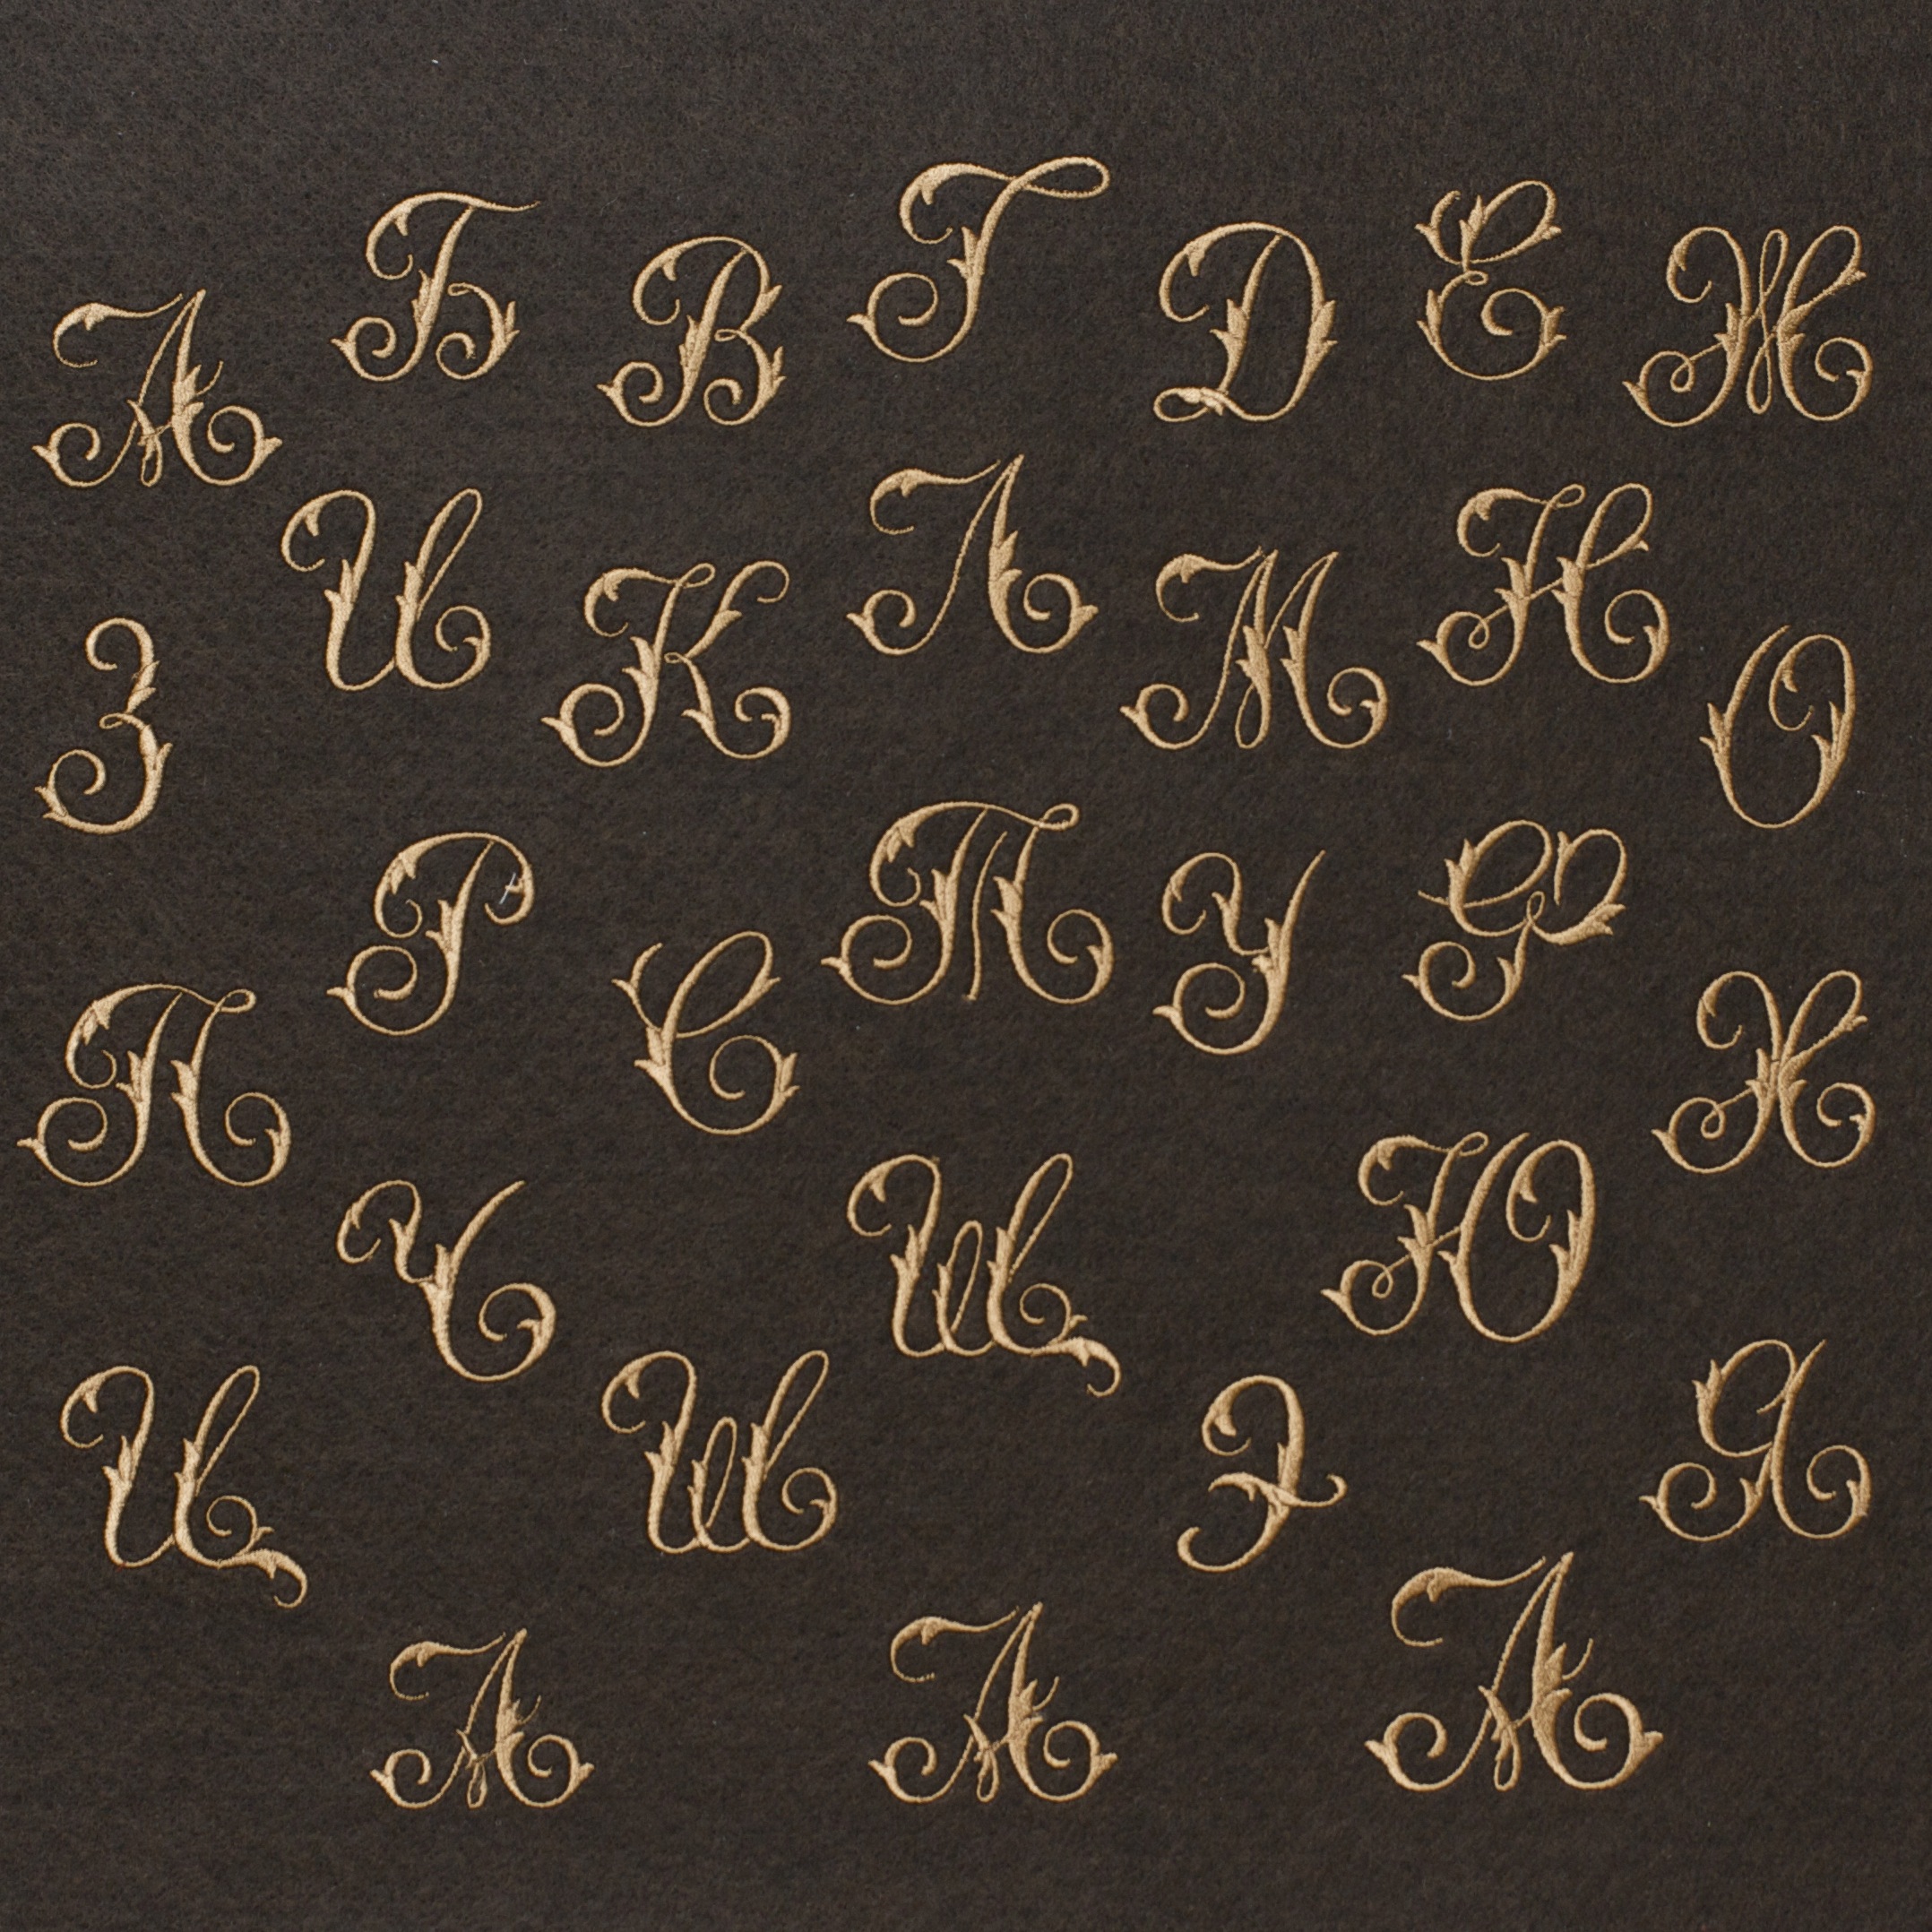 А Б В Г Д Е Ж
З И К Л М Н О
П Р С Т У Ф Х
Ц Ч Ш Щ Э Ю Я
А А А